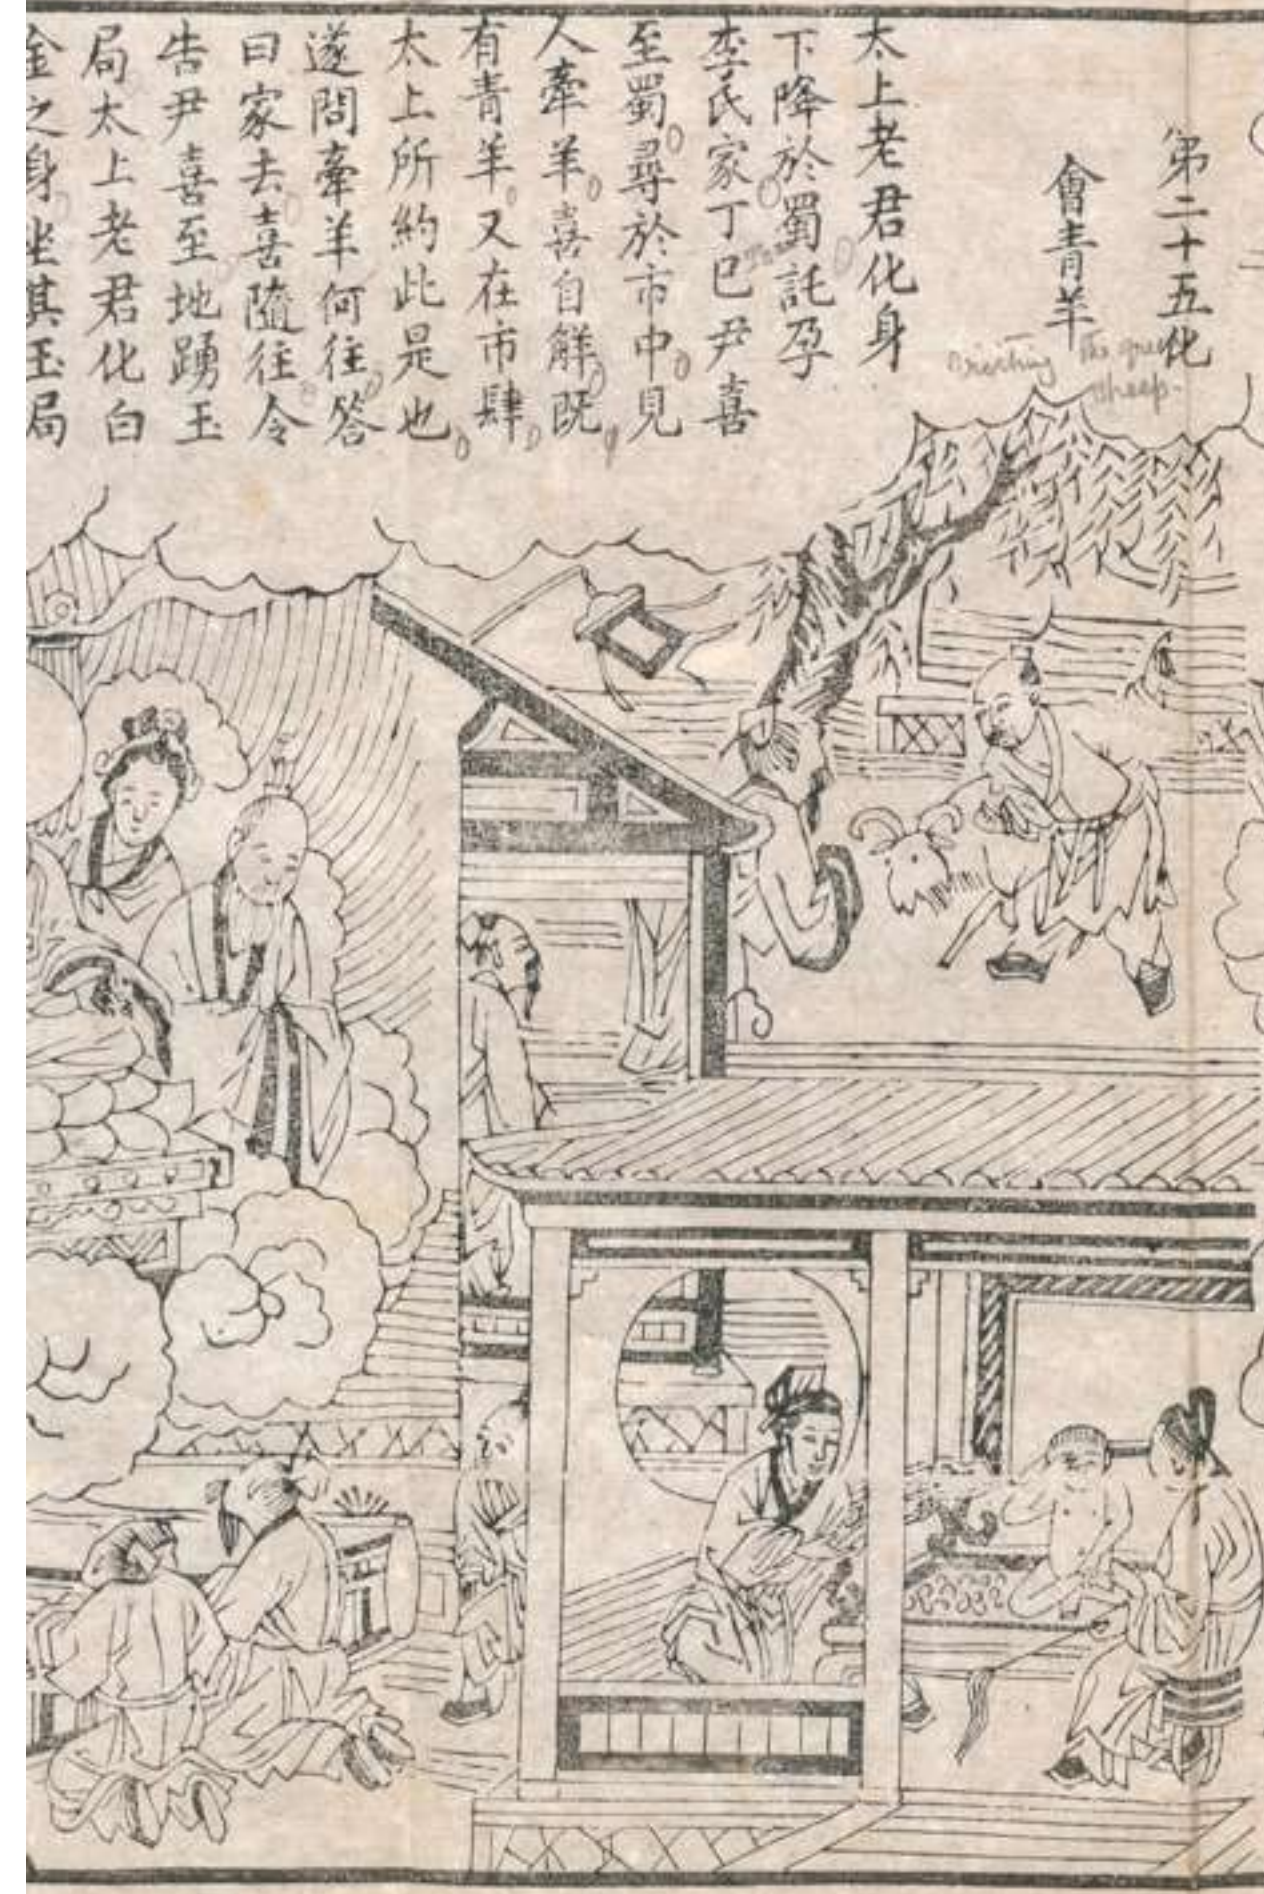 第二十五化
會青羊
the green
sheep-
太上老君化身
下降於蜀託孕
李氏家丁巳尹喜
至蜀尋於市中見
人牽羊喜自觧既
有青羊又在市肆
太上所約此是也
遂問牽羊何往答
曰家去喜隨往令
告尹喜至地踴玉
局太上老君化白
金之身坐其玉局